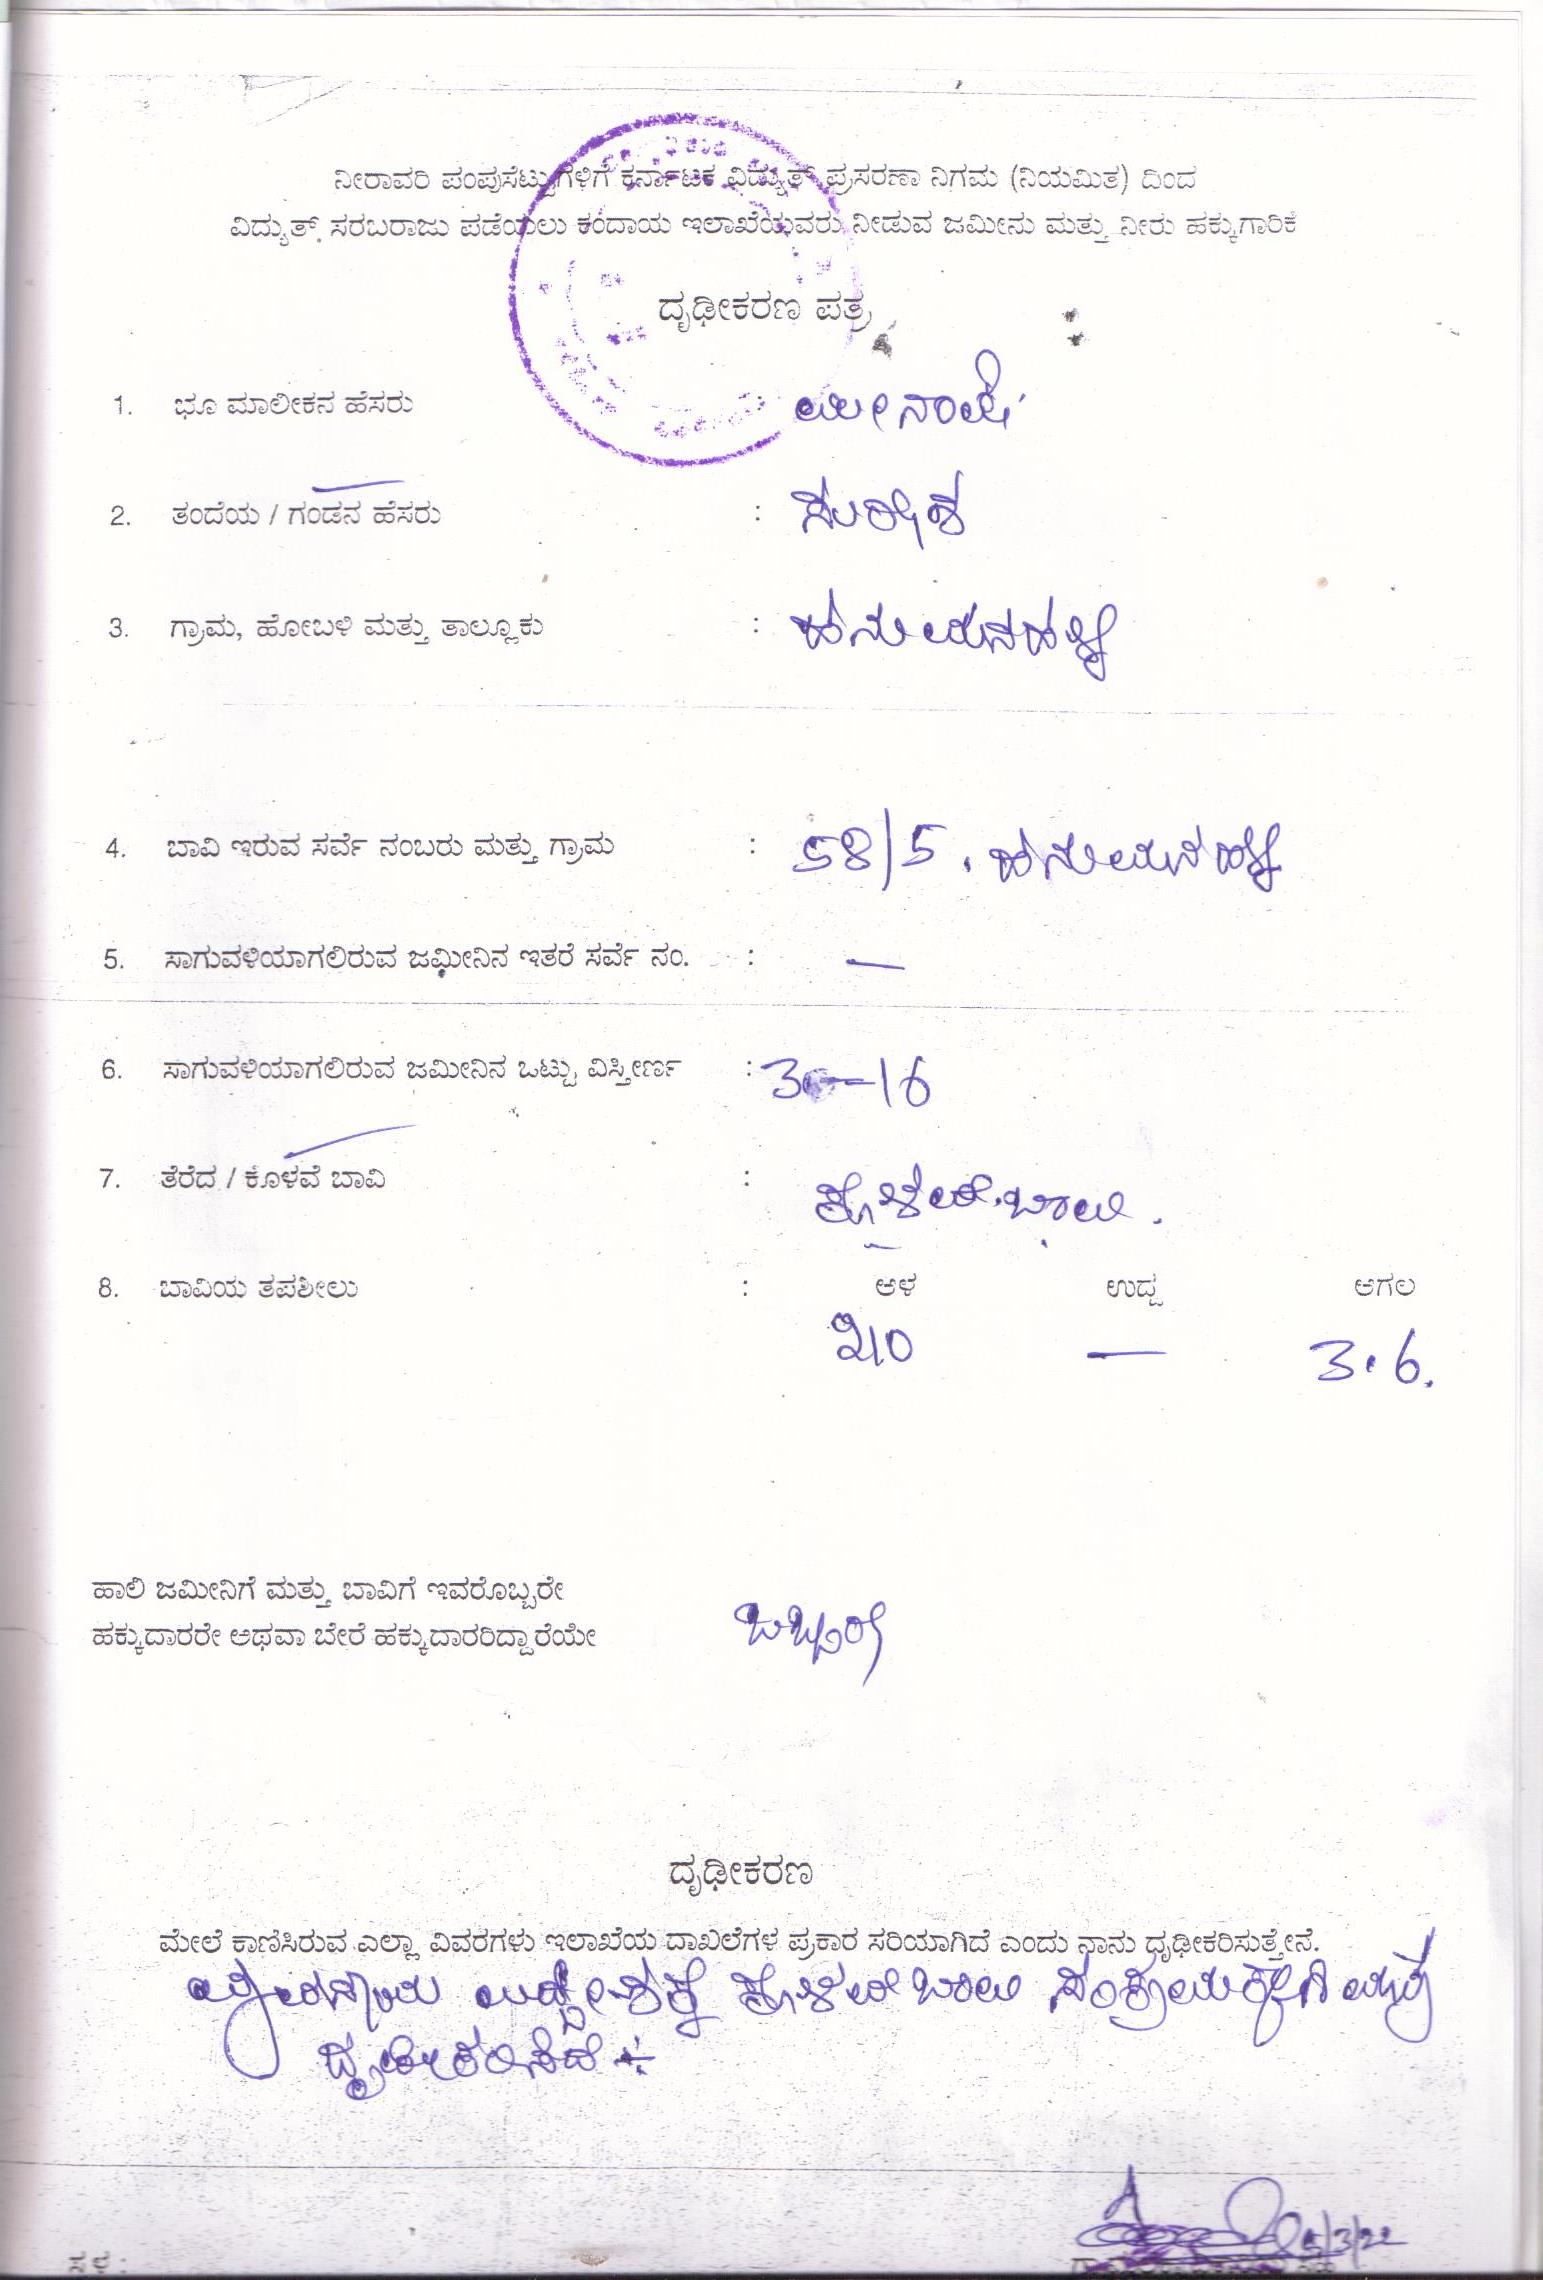 ನೀರಾವರಿ ಪಂಪುಸೆಟ್ಟುಗಳಿಗೆ ಕರ್ನಾಟಕ ವಿದ್ಯುತ್ ಪ್ರಸರಣಾ ನಿಗಮ (ನಿಯಮಿತ) ದಿಂದ
ವಿದ್ಯುತ್ ಸರಬರಾಜು ಪಡೆಯಲು ಕಂದಾಯ ಇಲಾಖೆಯವರು ನೀಡುವ ಜಮೀನು ಮತ್ತು ನೀರು ಹಕ್ಕುಗಾರಿಕೆ
ದೃಢೀಕರಣ ಪತ್ರ
1. ಭೂ ಮಾಲೀಕನ ಹೆಸರು :
2. ತಂದೆಯ / ಗಂಡನ ಹೆಸರು : ಸುರೇಶ
3. ಗ್ರಾಮ, ಹೋಬಳಿ ಮತ್ತು ತಾಲ್ಲೂಕು : ಹನುಮನಹಳ್ಳಿ
4. ಬಾವಿ ಇರುವ ಸರ್ವೆ ನಂಬರು ಮತ್ತು ಗ್ರಾಮ : 58/5. ಹನುಮನಹಳ್ಳಿ
5. ಸಾಗುವಳಿಯಾಗಲಿರುವ ಜಮೀನಿನ ಇತರೆ ಸರ್ವೆ ನಂ. : —
6. ಸಾಗುವಳಿಯಾಗಲಿರುವ ಜಮೀನಿನ ಒಟ್ಟು ವಿಸ್ತೀರ್ಣ :
7. ತೆರೆದ / ಕೊಳವೆ ಬಾವಿ : ಕೊಳವೆ ಬಾವಿ.
8. ಬಾವಿಯ ತಪಶೀಲು : ಆಳ ಉದ್ದ ಅಗಲ
210 — 3.6.
ಹಾಲಿ ಜಮೀನಿಗೆ ಮತ್ತು ಬಾವಿಗೆ ಇವರೊಬ್ಬರೇ
ಹಕ್ಕುದಾರರೇ ಅಥವಾ ಬೇರೆ ಹಕ್ಕುದಾರರಿದ್ದಾರೆಯೇ ಒಬ್ಬರೇ
ದೃಢೀಕರಣ
ಮೇಲೆ ಕಾಣಿಸಿರುವ ಎಲ್ಲಾ ವಿವರಗಳು ಇಲಾಖೆಯ ದಾಖಲೆಗಳ ಪ್ರಕಾರ ಸರಿಯಾಗಿದೆ ಎಂದು ನಾನು ದೃಢೀಕರಿಸುತ್ತೇನೆ.
ಉದ್ದೇಶಕ್ಕೆ ಕೊಳವೆ ಬಾವಿ ಮಾತ್ರ
ದೃಢೀಕರಿಸಿದೆ
5/3/22
ಸ್ಥಳ :